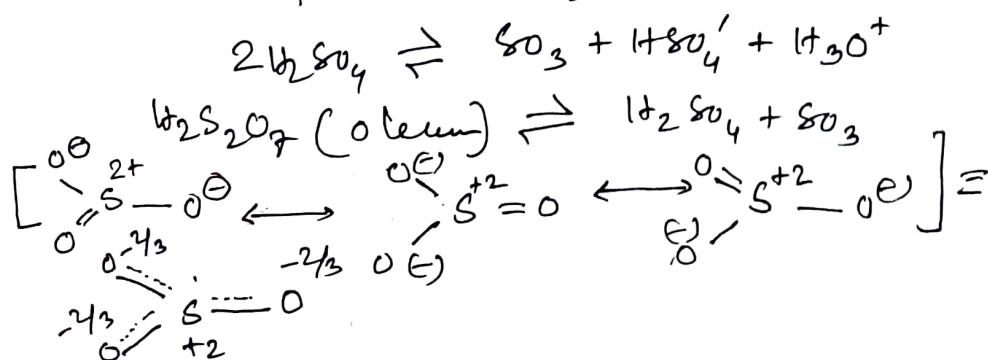 2H₂SO₄ ⇌ SO₃ + HSO₄' + H₃O⁺
H₂S₂O₇ (oleum) ⇌ H₂SO₄ + SO₃
[ O⊖ S 2+ O O⊖ ⟷ O(-) S +2 = O O(-) ⟷ O S +2 O(-) (-)O ] ≡
O -2/3 S +2 O -2/3 O -2/3